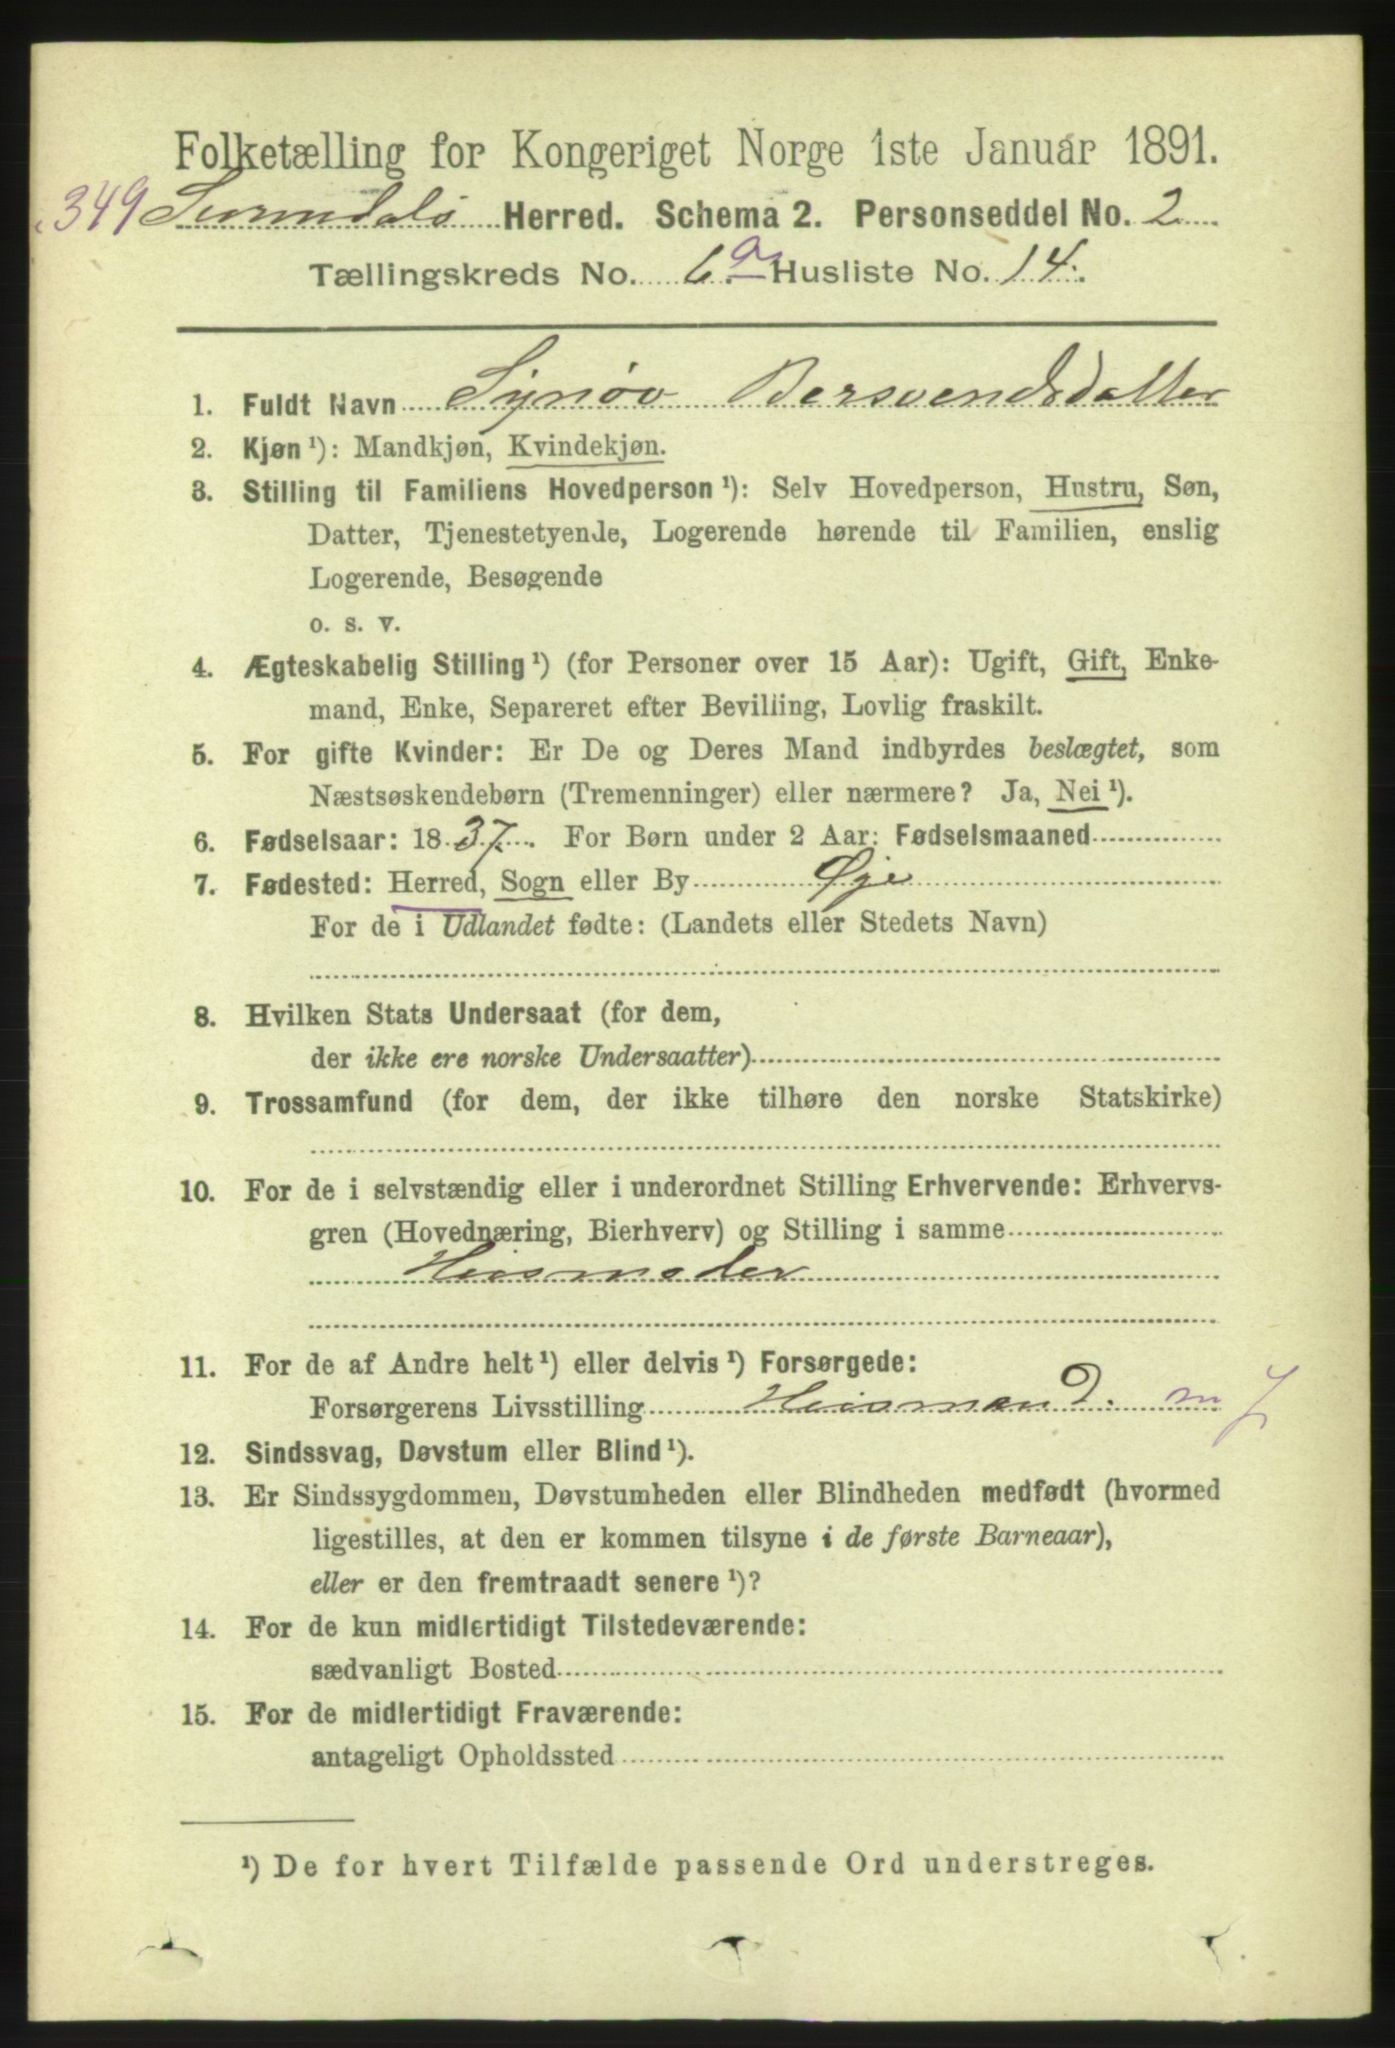 Folketælling for Kongeriget Norge 1ste Januar 1891.
349 Surendals Herred. Schema 2. Personseddel No. 2
Tællingskreds No. 6.a Husliste No. 14.
1. Fuldt Navn Synøv Bersvendsdatter
2. Kjøn ¹): Mandkjøn, Kvindekjøn.
3. Stilling til Familiens Hovedperson ¹): Selv Hovedperson, Hustru, Søn,
Datter, Tjenestetyende, Logerende hørende til Familien, enslig
Logerende, Besøgende
o. s. v.
4. Ægteskabelig Stilling ¹) (for Personer over 15 Aar): Ugift, Gift, Enke-
mand, Enke, Separeret efter Bevilling, Lovlig fraskilt.
5. For gifte Kvinder: Er De og Deres Mand indbyrdes beslægtet, som
Næstsøskendebørn (Tremenninger) eller nærmere? Ja, Nei ¹).
6. Fødselsaar: 1837. For Børn under 2 Aar: Fødselsmaaned
7. Fødested: Herred, Sogn eller By Øje
For de i Udlandet fødte: (Landets eller Stedets Navn)
8. Hvilken Stats Undersaat (for dem,
der ikke ere norske Undersaatter)
9. Trossamfund (for dem, der ikke tilhøre den norske Statskirke)
10. For de i selvstændig eller i underordnet Stilling Erhvervende: Erhvervs-
gren (Hovednæring, Bierhverv) og Stilling i samme
Husmoder
11. For de af Andre helt ¹) eller delvis ¹) Forsørgede:
Forsørgerens Livsstilling Husmand. m
12. Sindssvag, Døvstum eller Blind ¹).
13. Er Sindssygdommen, Døvstumheden eller Blindheden medfødt (hvormed
ligestilles, at den er kommen tilsyne i de første Barneaar),
eller er den fremtraadt senere ¹)?
14. For de kun midlertidigt Tilstedeværende:
sædvanligt Bosted
15. For de midlertidigt Fraværende:
antageligt Opholdssted
¹) De for hvert Tilfælde passende Ord understreges.